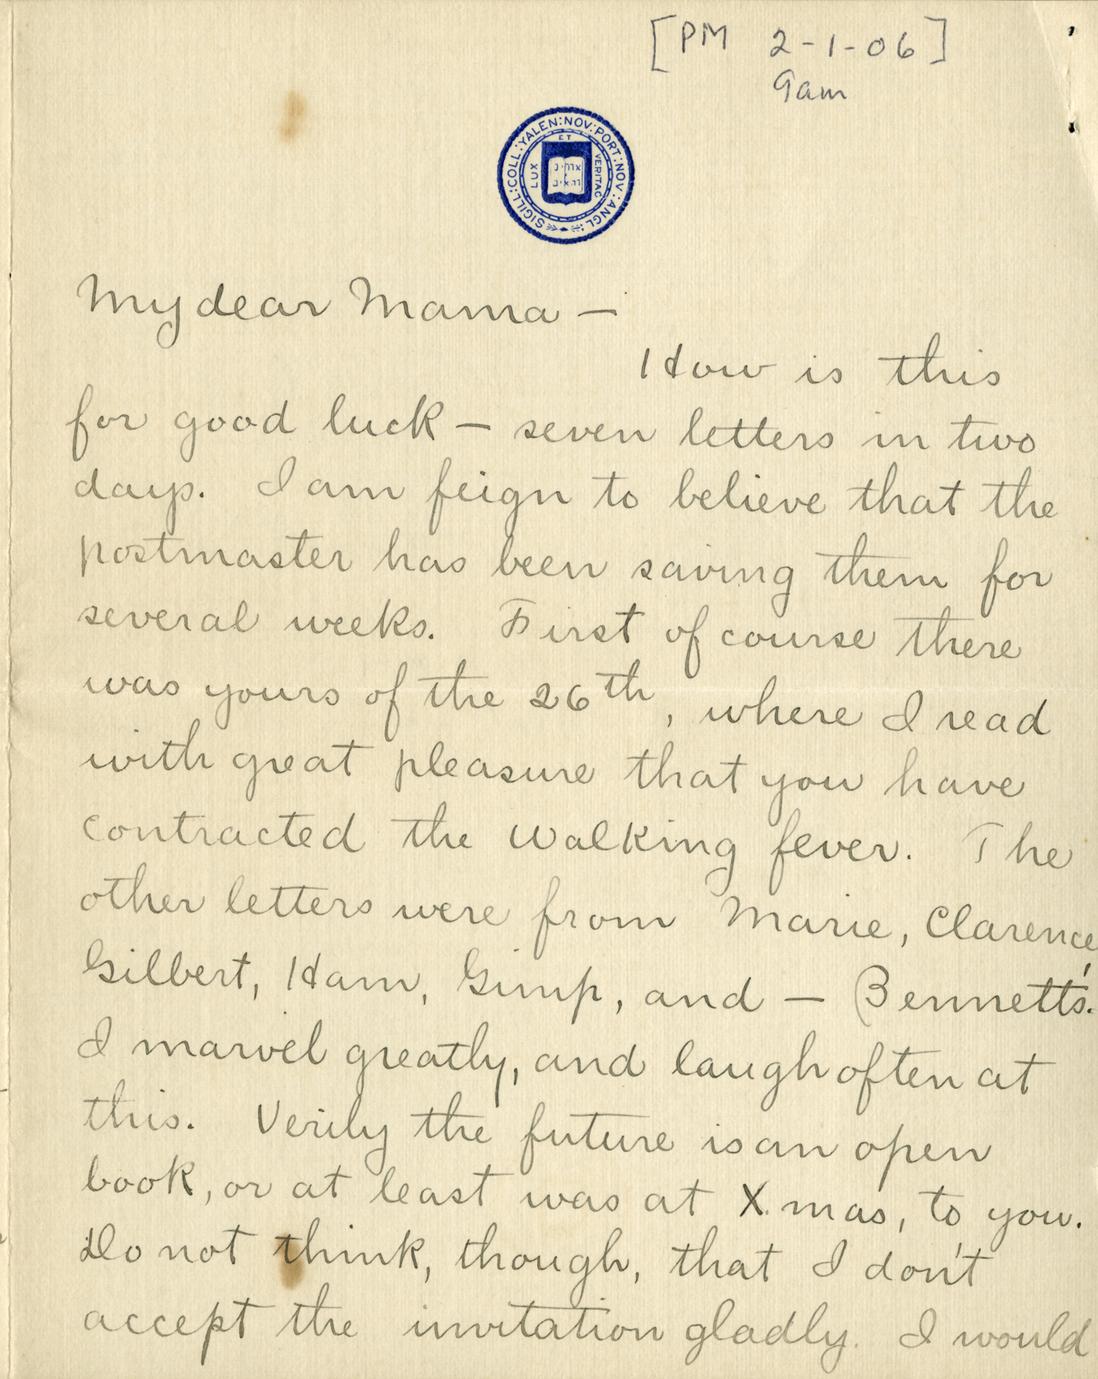 [PM 2-1-06]
9am
SIGILL:COLL:YALEN:NOV:PORT:NOV:ANGL:
ET
LUX
VERITAS
My dear Mama —
How is this
for good luck — seven letters in two
days. I am feign to believe that the
postmaster has been saving them for
several weeks. First of course there
was yours of the 26th, where I read
with great pleasure that you have
contracted the walking fever. The
other letters were from Marie, Clarence,
Gilbert, Ham, Gimp, and — Bennetts.
I marvel greatly, and laugh often at
this. Verily the future is an open
book, or at least was at Xmas, to you.
Do not think, though, that I don't
accept the invitation gladly. I would